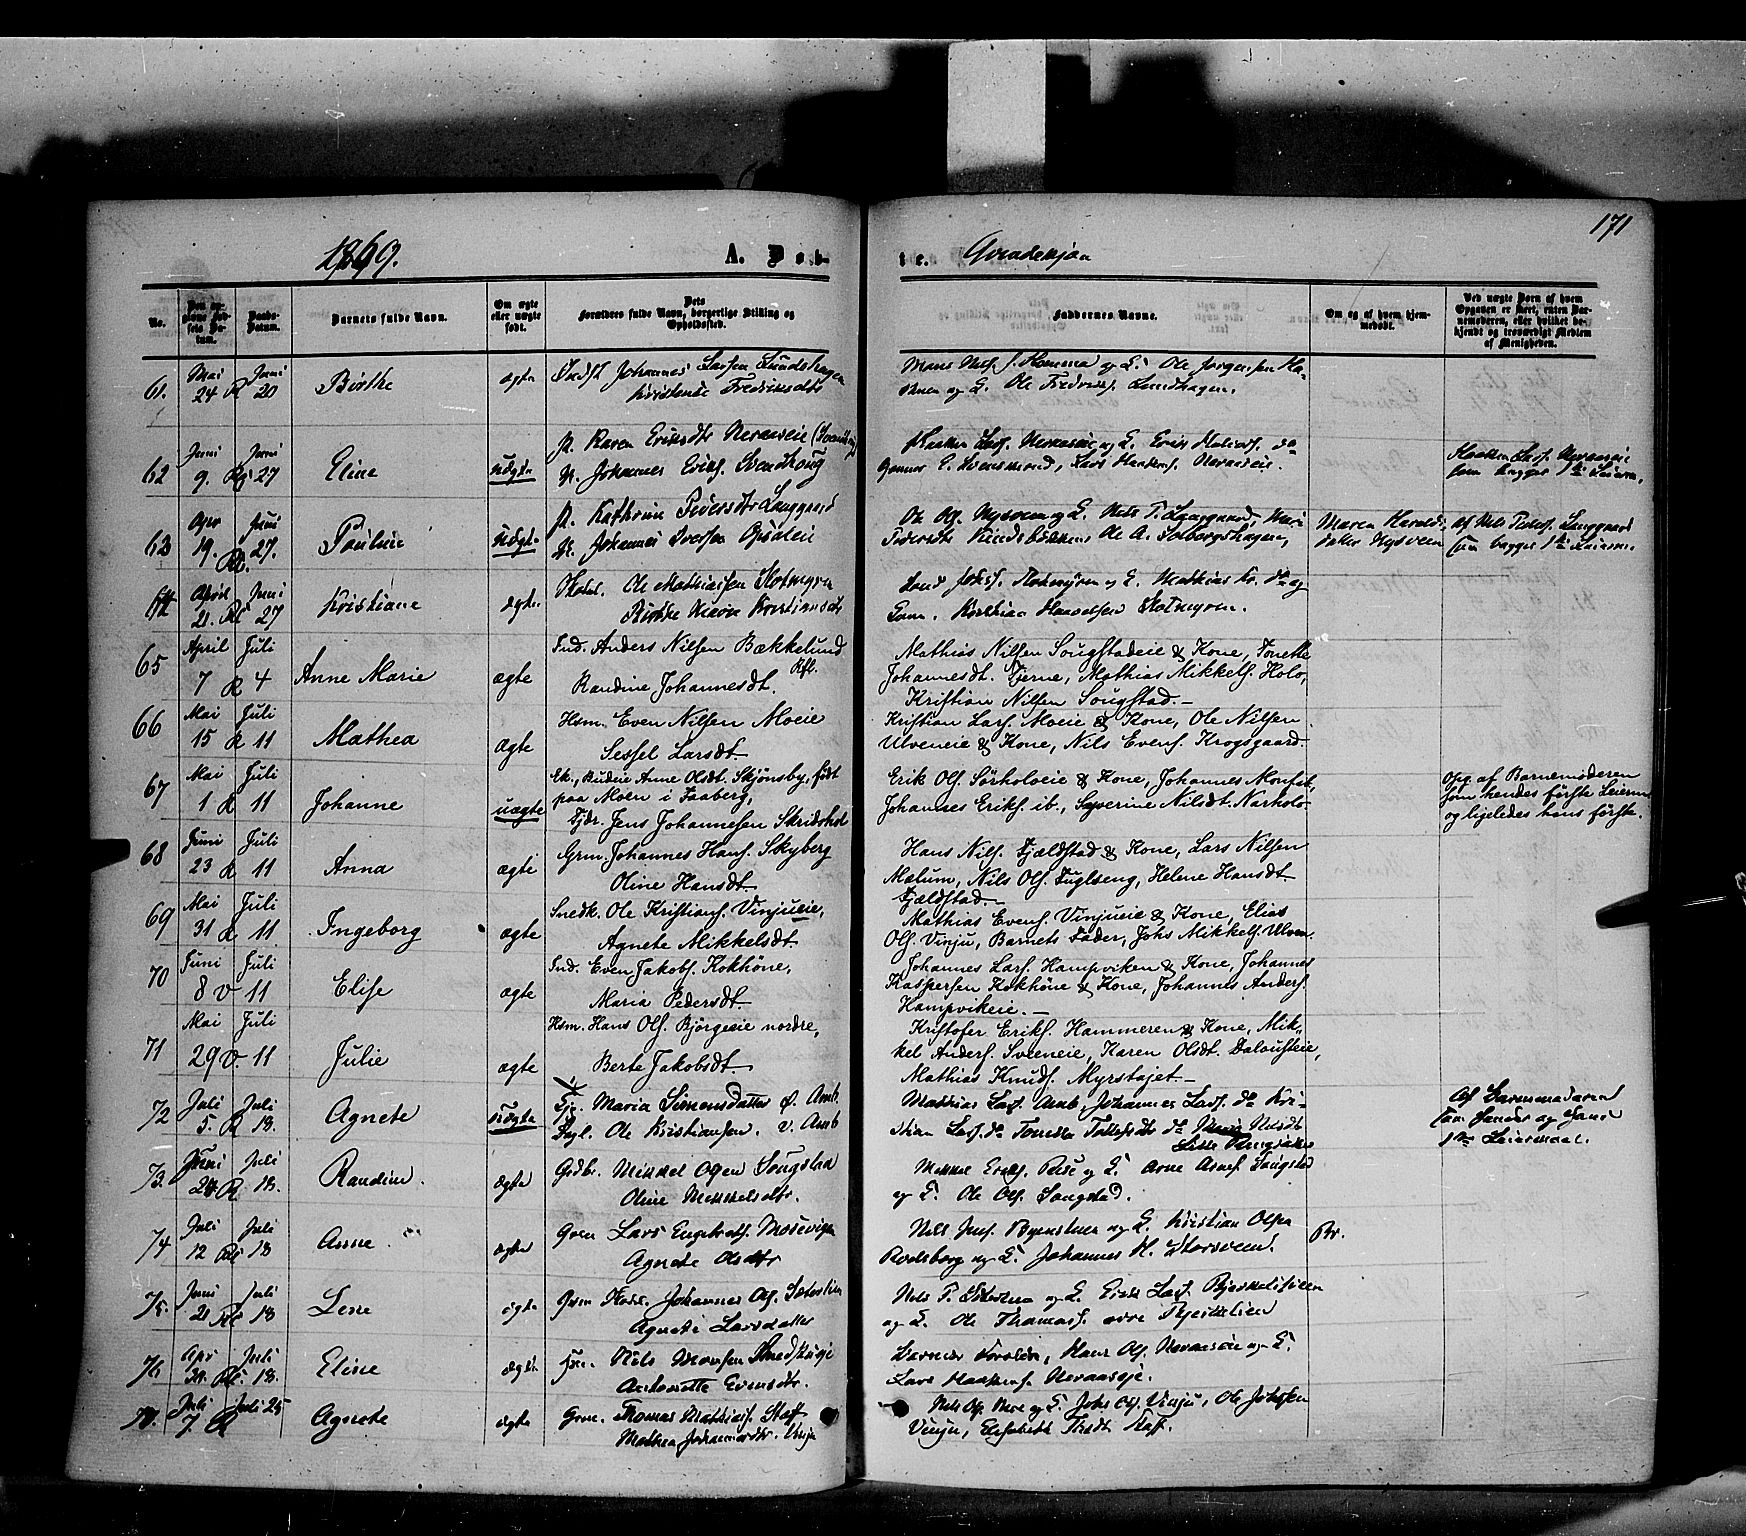 171
1869.
A. Døbte. Qvindekjøn
No.
Den angivne Fødsels Datum.
Daabs-Datum.
Barnets fulde Navn.
Om ægte eller uægte født.
Dets Forældres fulde Navn, borgerlige Stilling og Opholdssted.
Faddernes Navne.
Om og af hvem hjemmedøbt.
Ved uægte Barn af hvem Opgaven er skeet, enten Barnemoderen, eller hvilket bekjendt og troværdigt Medlem af Menigheden.
61. Mai 24 R Juni 20 Birthe ægte Johannes Larsen Lundshagen
Kristense Fredriksdtr
Mons Nils. Homma og K. Ole Jørgensen
og K. Ole Fredriks. Lundhagen.
62 Juni 9. Juni 27 Eline uægte p. Karen Eriksdtr Neraaseie
Johannes Eriks. Svendhoug
Lars. Neraaseie og K. Erik
Gunnar E. Lars Haakens. Neraaseie.
Haaken Lars. Neraaseie
som begges 1ste Leierm.
63 Apr 19. Juni 27. Pauline uægte p. Kathrine Pedersdtr Langgaard
Johannes Iversen Opsaleie
Ole Ol. Nysveen og K. Nils P. Langgaard,
Ole A. Solbergshagen,
Maren Haralds-
datter Nysveen
Af Nils Peders. Langgaard
som begges 1ste Leierm.
64 April 21. Juni 27 Kristiane ægte Ole Mathiassen Slotmyren
Birthe Marie Kristiansdtr
Slotmyren og K. Mathias Kr. do og
Kristian Haavelsen Slotmyren.
65 April 7 R Juli 4 Anne Marie ægte Ind. Anders Nilsen Bækkelund
Randine Johannesdt.
Mathias Nilsen Sougstadeie & Kone, Tonette
Johannesdt. Tjerne, Mathias Mikkels. Holo,
Kristian Nilsen Sougstad.
66 Mai 15 R Juli 11 Mathea ægte Hsm. Even Nilsen Moeie
Sessel Larsdt.
Kristian Lars. Moeie & Kone, Ole Nilsen
Ulveneie & Kone, Nils Evens. Krogsgaard.
67 Mai 1 R Juli 11 Johanne uægte Ek., Budeie Anne Olsdt. Skjønsby, født
paa Moen i Faaberg,
Tjdr. Jens Johannesen Skridshol
Erik Ols. Sørholoeie & Kone, Johannes
Johannes Eriks. ib., Syverine Nilsdt. Narholo.
Opg. af Barnemoderen
som hendes første Leierm.
og ligeledes hans første.
68 Juni 23 R Juli 11 Anna ægte Grm. Johannes Hans. Skyberg
Oline Hansdt.
Hans Nils. Fjældstad & Kone, Lars Nilsen
Mælum, Nils Ols. Fuglseng, Helene Hansdt.
Fjældstad.
69 Mai 31 R Juli 11 Ingeborg ægte Snedk. Ole Kristians. Vinjueie,
Agnete Mikkelsdt.
Mathias Evens. Vinjueie & Kone, Elias
Ols. Vinju, Barnets Fader, Johs Mikkels. Ulven.
70 Juni 8 V Juli 11 Elise ægte Ind. Even Jakobs. Kokhöne,
Maria Pedersdt.
Johannes Lars. Hampviken & Kone, Johannes
Kaspersen Kokhöne & Kone, Johannes Anders.
Hampvikeie.
71 Mai 29 V. Juli 11 Julie ægte Hsm. Hans Ols. Bjørgeeie nordre,
Berte Jakobsdt.
Kristofer Eriks. Hammeren & Kone, Mik-
kel Anders. Sveeneie, Karen Olsdt.
Mathias Knuds. Myrstøjet.
72 Juli 5. R Juli 18. Agnete uægte Tje. Maria Simensdatter Ø. Amb.
Ole Kristiansen. v. Amb
Mathias Lars. Amb Johannes Lars. do Kri-
stian Lars. do Nilsdt
Af Barnemoderen
som hendes og hans
1ste Leiermaal.
73. Juni 24 R Juli 18. Randine. ægte Gdbr. Mikkel Olsen Sougstad
Oline Mikkelsdtr.
Mikkel Eriks. Rise og K. Arne Arnes. Sougstad
og K. Ole Ols. Sougstad.
74 Juli 12 Juli 18 Anne ægte Lars Engebrets. Moseviga
Agnete Olsdtr
Nils Jens. og K. Kristian Olsen
Rodeborg og K. Johannes H. Storsveen.
Br.
75. Juni 21 Juli 18 Lene ægte Johannes Ols. Sæterlien
Agnete Larsdatter
Nils P. og K. Lars. Bjerkelislien
og K. Ole Thomas. øvre Bjerkelien
76 Apr Juli 18. Eline ægte Nils Monsen
Antonette Evensdtr.
Hans Ols. Neraaseie og K.
Lars Haakens. Neraaseje.
77. Juli 7. R Juli 25 Agnete ægte Thomas Mathias. Staff
Mathea Johannesdtr. Vinju
Nils Ols. og K. Johs Ols. Vinju, Ole Johssen
Vinju, Elisabeth Staff.